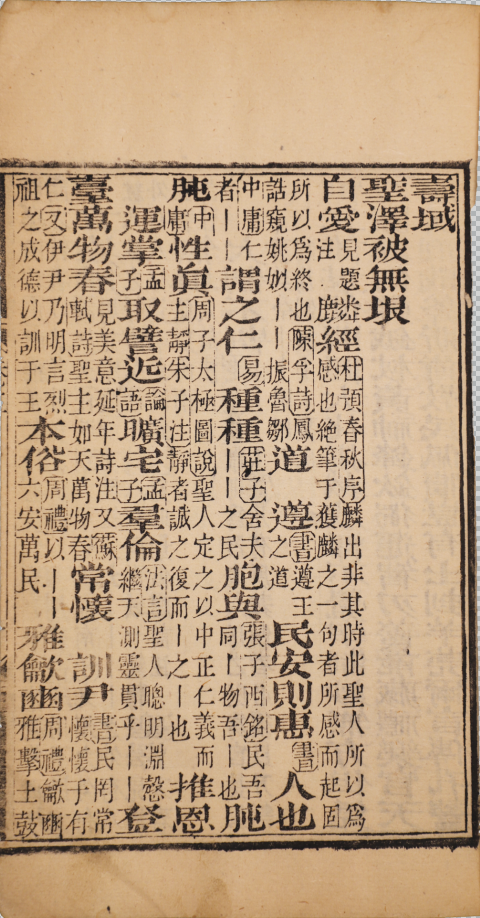 壽域
聖澤被無垠
自愛見題注麟經杜預春秋序麟出非其時此聖人所以為感也絕筆于獲麟之一句者所感而起固
所以為終也陳孚詩鳳詰窺姚姒｜｜振魯鄒道遵書遵王之道民安則惠書人也
中庸仁者｜｜謂之仁易種種莊子舍夫｜｜之民胞與張子西銘民吾同｜物吾｜也肫
肫中庸性真周子太極圖說聖人定之以中正仁義而主靜朱子注靜者誠之復而｜之｜也推恩
運掌孟子取譬近論語曠宅孟子羣倫法言聖人聰明淵懿繼天測靈貫乎｜｜登
臺萬物春見美意延年詩注又蘇軾詩聖主如天萬物春常懷訓尹書民罔常懷懷于有
仁又伊尹乃明言烈祖之成德以訓于王本俗周禮以｜｜六安萬民雅龡豳周禮龡豳雅擊土鼓